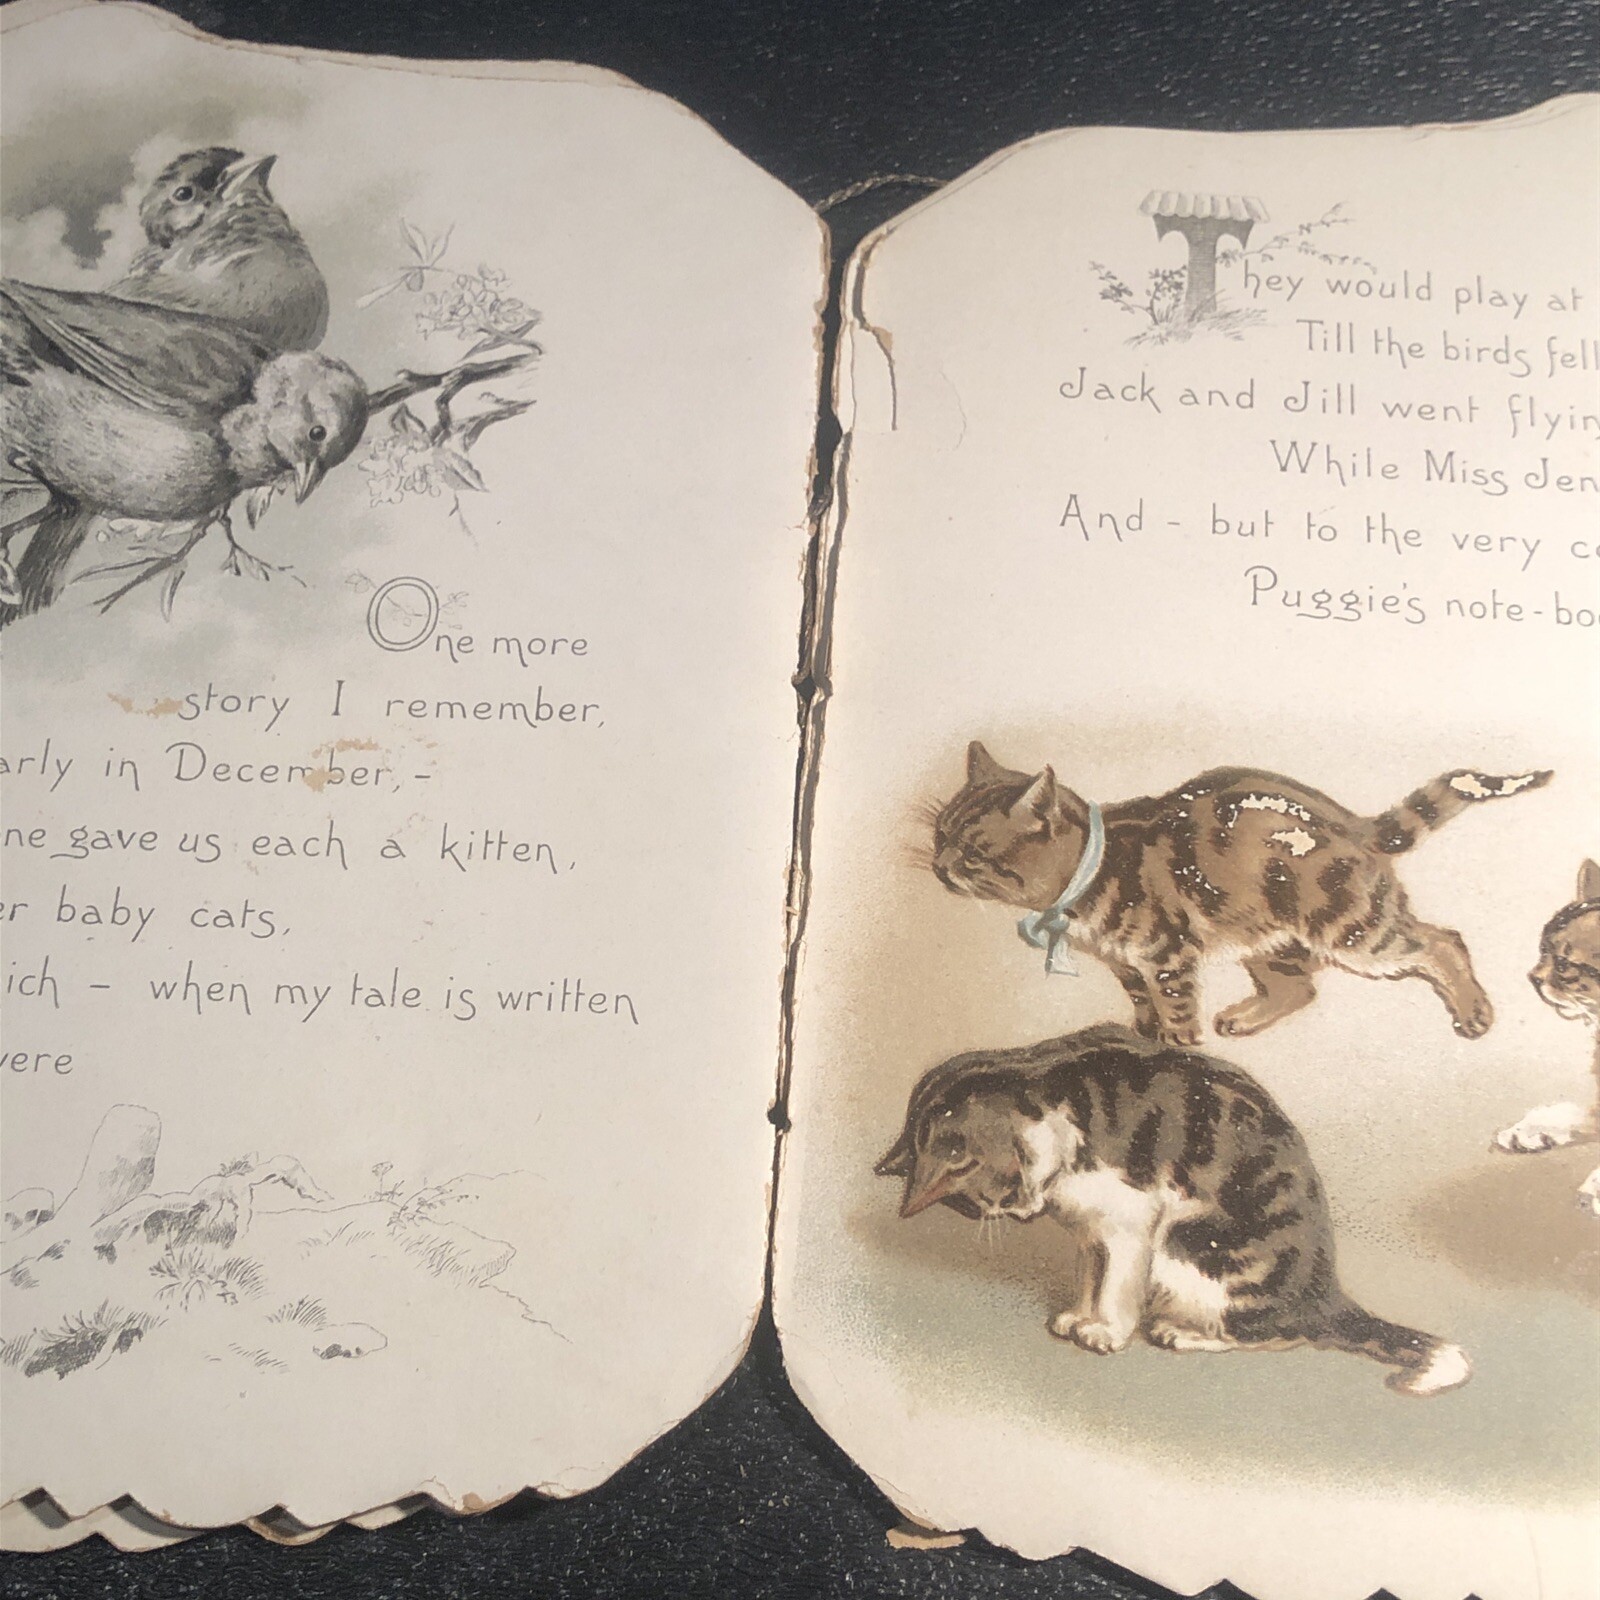 One more
story I remember,
in December, -
gave us each a kitten,
baby cats,
- when my tale is written
They would play at
Till the birds fell
Jack and Jill went
While Miss
And - but to the very
Puggie's